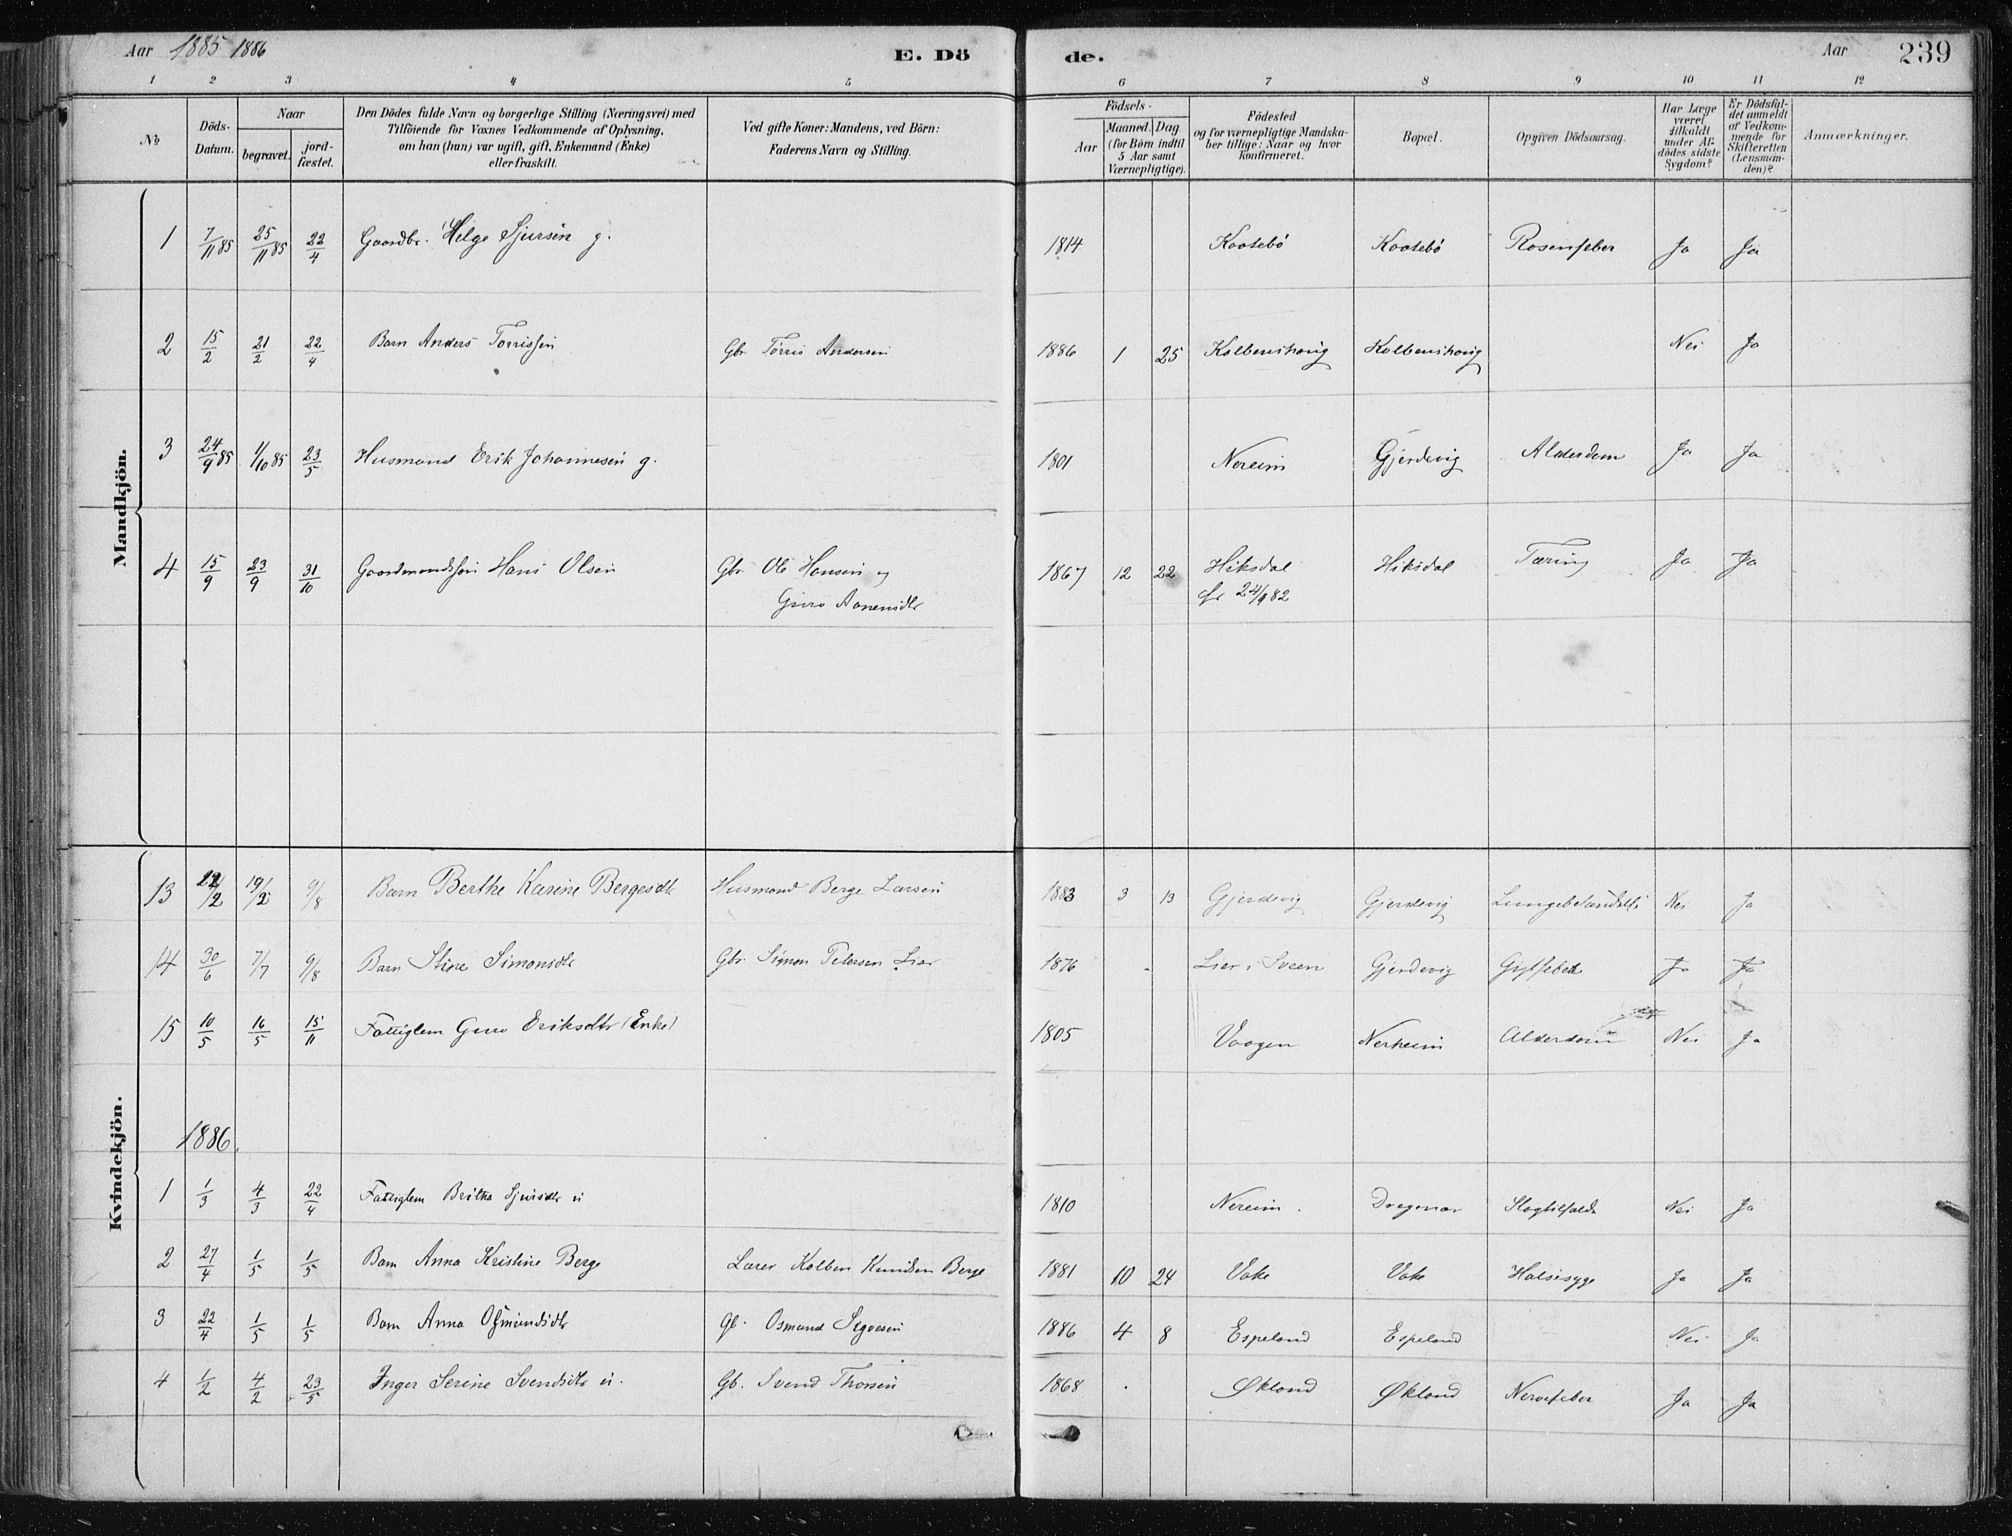 Aar 1885 1886 E. Dö de. Aar 239
1 2 3 4 5 6 7 8 9 10 11 12
No
Döds-
Datum.
Naar
begravet.
jord-
fæstet.
Den Dödes fulde Navn og borgerlige Stilling (Næringsvei) med
Tilföiende for Voxnes Vedkommende af Oplysning,
om han (hun) var ugift, gift, Enkemand (Enke)
eller fraskilt.
Ved gifte Koner: Mandens, ved Börn:
Faderens Navn og Stilling.
Födsels-
Aar
Maaned. Dag
(for Börn indtil
5 Aar samt
Værnepligtige).
Födested
og for værnepligtige Mandska-
ber tillige: Naar og hvor
konfirmeret.
Bopæl.
Opgiven Dödsaarsag.
Har Læge
været
tilkaldt
under Af-
dödes sidste
Sygdom?
Er Dödsfal-
det anmeldt
af Vedkom-
mende for
Skifteretten
(Lensman-
den)?
Anmærkninger.
Mandkjön.
1 7/11 85 25/11 85 22/4 Gaardbr. Helge Sjursen g. 1814 Kaatebö Kaatebö Rosenfeber Ja Ja
2 15/2 21/2 22/4 Barn Anders Torrissen Gbr Torris Andersen 1886 1 25 Kolbenshaug Kolbenshaug Nei Ja
3 24/9 85 1/10 85 23/5 Husmand Erik Johannesen g. 1801 Nereim Gjerdevig Alderdom Ja Ja
4 15/9 23/9 31/10 Gaardmandssøn Hans Olsen Gbr Ole Hansen og 1867 12 22 Hiksdal Hiksdal Tæring Ja Ja
Guro Aanensdtr 24/9 82
Kvindekjön.
13 19/2 9/8 Barn Berthe Karine Bergesdtr Husmand Berge Larsen 1883 3 13 Gjerdevig Gjerdevig Nei Ja
14 30/6 7/7 9/8 Barn Stine Simonsdtr Gbr Simon Petersen Lier 1876 Lier i Sveen Gjerdevig Ja Ja
15 10/5 16/5 15/11 Fattiglem Guro Eriksdtr (Enke) 1805 Vaagen Nerheim Alderdom Nei Ja
1886.
1 1/3 4/3 22/4 Fattiglem Britha Sjursdtr ú 1810 Nereim. Slagtilfælde Nei Ja
2 27/4 1/5 1/5 Barn Anna Kristine Berge Lærer Kolben Knudsen Berge 1881 10 24 Vake Vake Halssyge Ja Ja
3 22/4 1/5 1/5 Barn Anna Osmundsdtr Gb. Osmund Sigvesen 1886 4 8 Espeland Espeland Nei Ja
4 1/2 4/2 23/5 Inger Serine Svendsdtr ú. Gb. Svend Thorsen 1868 Økland Økland Nervefeber Ja Ja